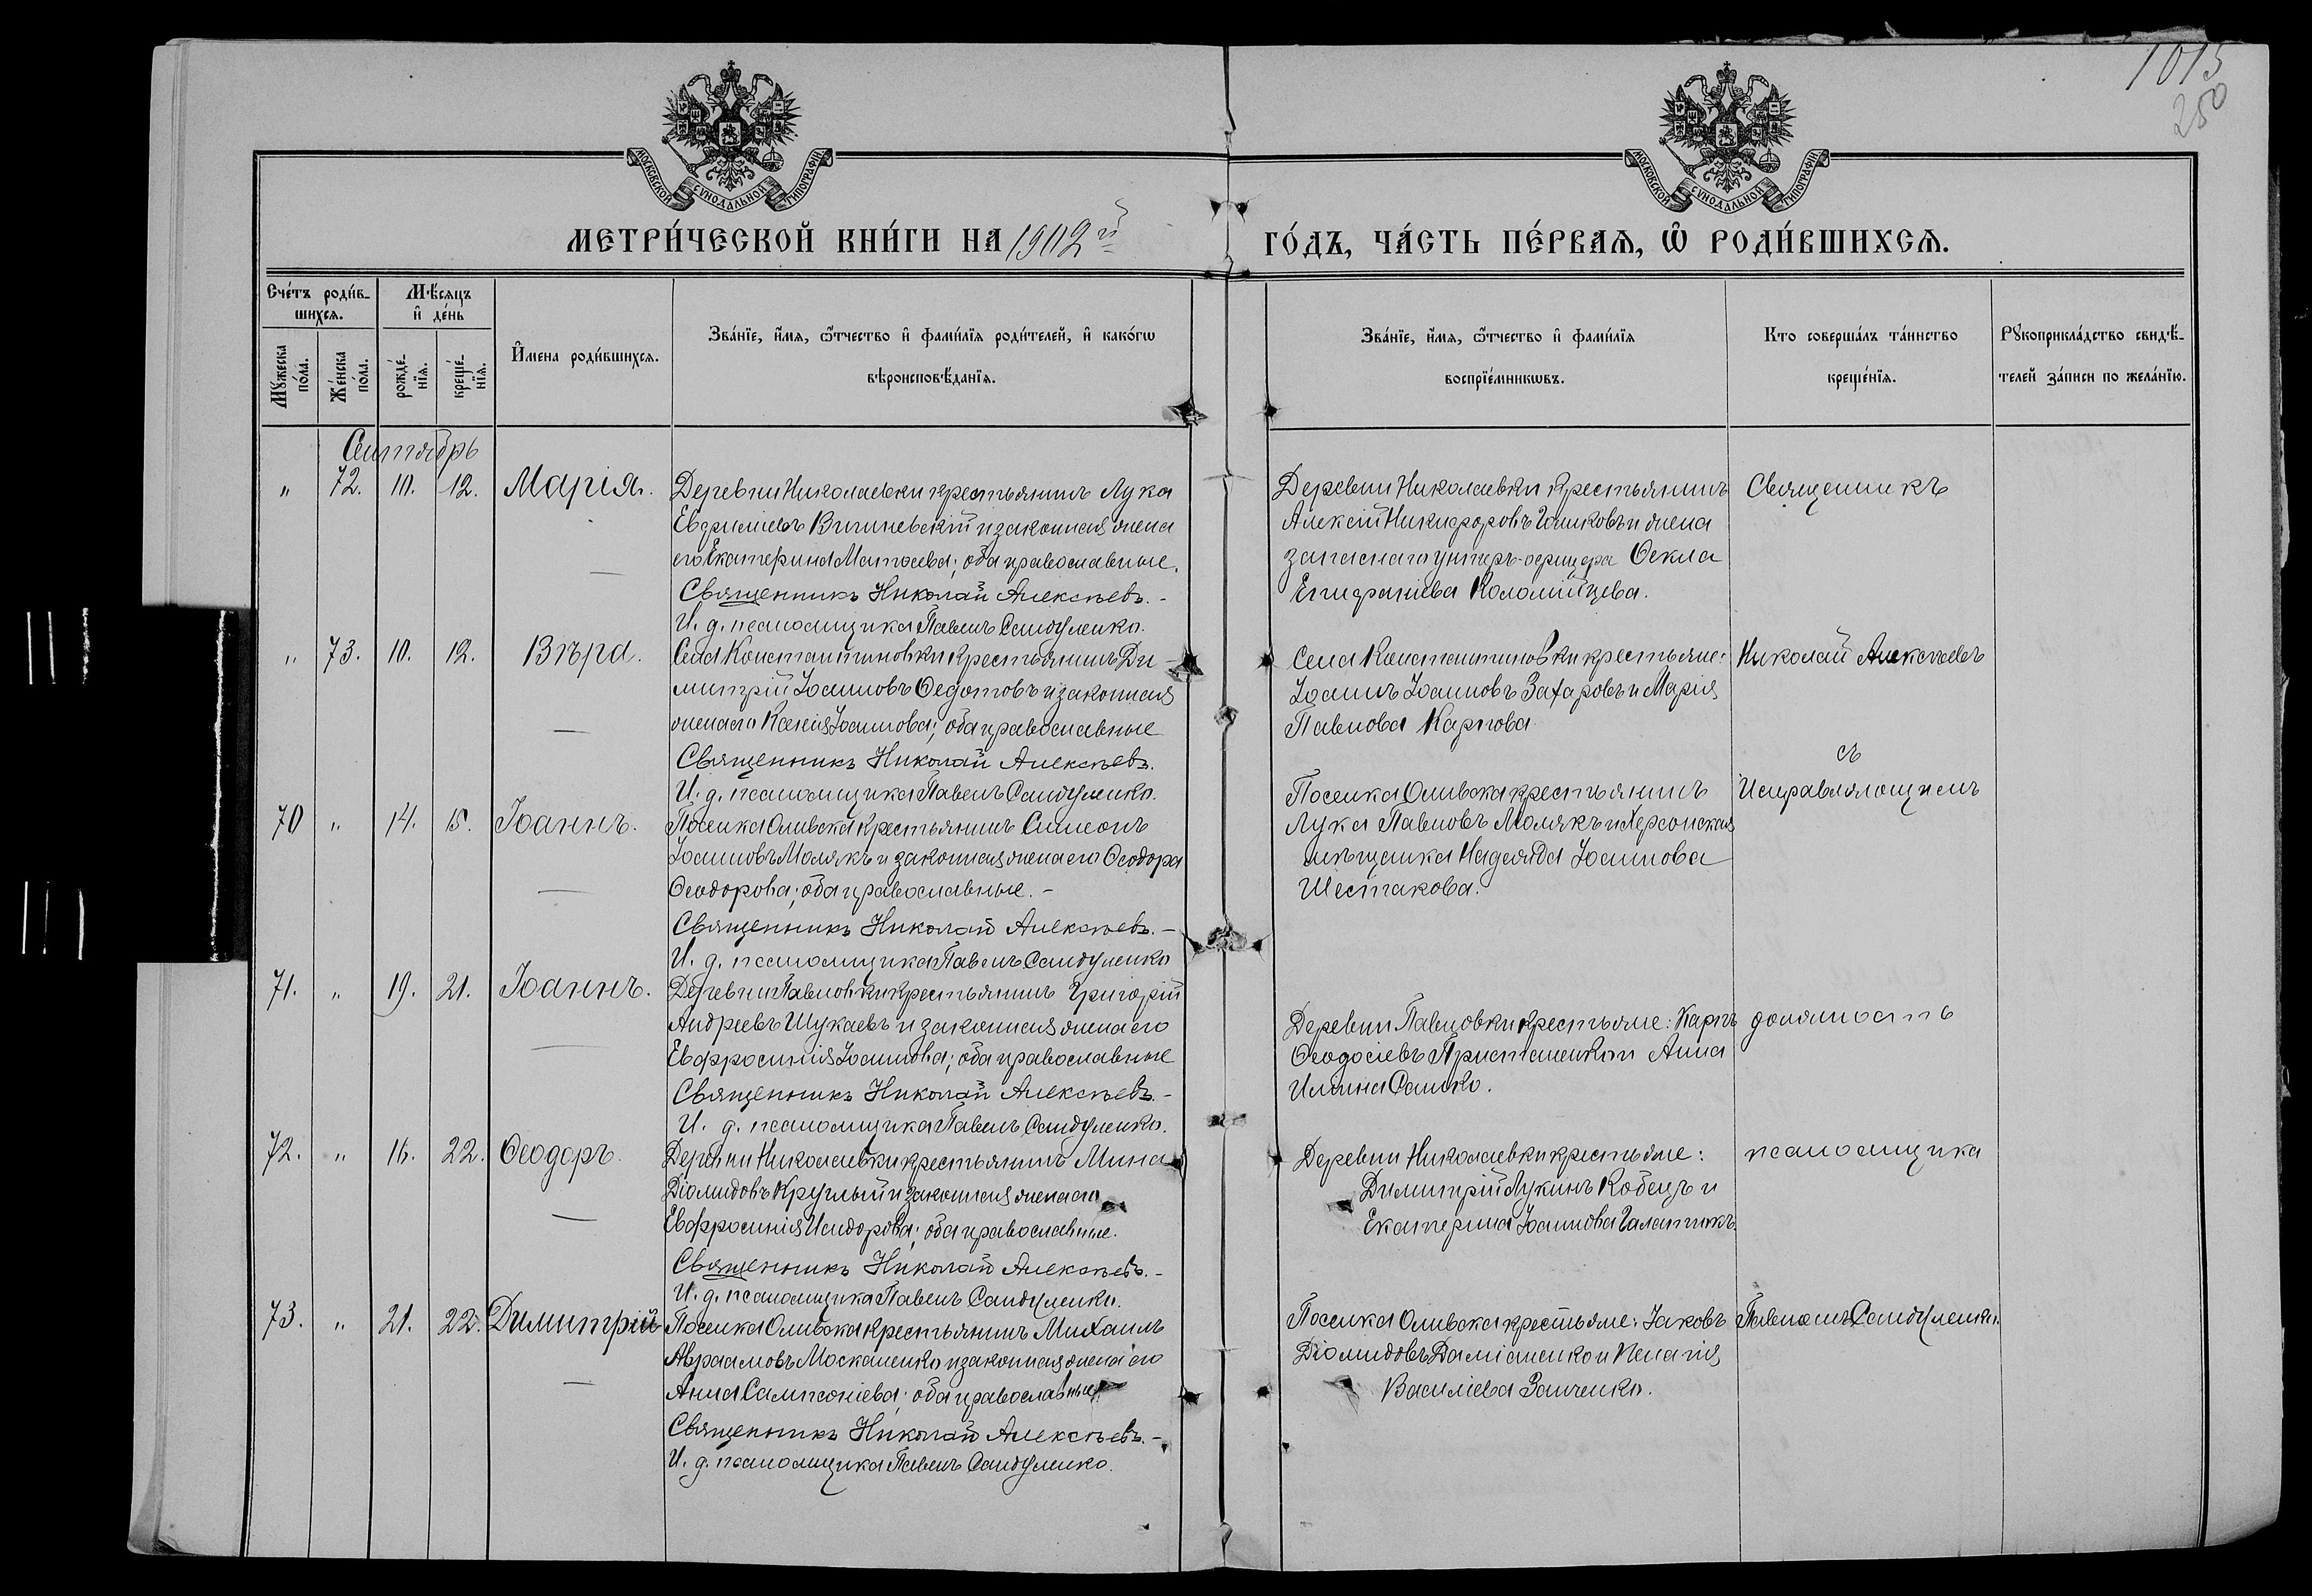 1015
250
МОСКОВСКОЙ СУНОДАЛЬНОЙ ТИПОГРАФІИ
МОСКОВСКОЙ СУНОДАЛЬНОЙ ТИПОГРАФІИ
МЕТРИ́ЧЕСКОЙ КНИ́ГИ НА 1902й
ГО́ДЪ, ЧА́СТЬ ПЕ́РВАѦ, Ѡ РОДИ́ВШИХСѦ.
Сче́тъ роди́в-
шихсѧ.
Мꙋ́жеска по́ла.
Же́нска по́ла.
Мѣ́сяцъ
и҆ де́нь
рожде́-
нїѧ.
креще́-
нїѧ.
И҆мена роди́вшихсѧ.
Зва́нїе, и҆́мѧ, ѻ҆́тчество и҆ фами́лїѧ роди́телей, и҆ како́гѡ
вѣроисповѣ́данїѧ.
Зва́нїе, и҆́мѧ, ѻ҆́тчество и҆ фами́лїѧ
воспрїе́мникѡвъ.
Кто соверша́лъ та́инство
креще́нїѧ.
Рꙋкоприкла́дство свидѣ́-
телей за́писи по жела́нїю.
Сентябрь
" 72. 10. 12. Марія.
Деревни Николаевки крестьянинъ Лука
Евфиміевъ Вишневскій и законная жена
его Екатерина Матѳеева; оба православные.
Священникъ Николай Алексѣевъ.-
И. д. псаломщика Павелъ Сандуленко.
Деревни Николаевки крестьянинъ
Алексій Никифоровъ и жена
запаснаго унтеръ-офицера Ѳекла
Епифаніева Коломійцева.
Священникъ
" 73. 10. 12. Вѣра.
Села Константиновки крестьянинъ Ди-
митрій Іоанновъ Ѳедотовъ и законная
жена его Ксенія Іоаннова; оба православные
Священникъ Николай Алексѣевъ.
И. д. псаломщика Павелъ Сандуленко.
Села Константиновки крестьяне:
Іоаннъ Іоанновъ Захаровъ и Марія
Павлова Карпова
Николай Алексѣевъ
съ
70 " 14. 15. Іоаннъ.
Поселка Оливска крестьянинъ Симеонъ
Іоанновъ Молякъ и законная жена его Ѳеодора
Ѳеодорова; оба православные.-
Священникъ Николай Алексѣевъ.-
И. д. псаломщика Павелъ Сандуленко
Поселка Оливска крестьянинъ
Лука Павловъ Молякъ и Херсонская
мѣщанка Надежда Іоаннова
Шестакова.
Исправляющимъ
71. " 19. 21. Іоаннъ.
Деревни Павловки крестьянинъ Григорій
Андреевъ Шукаевъ и законная жена его
Евфросинія Іоаннова; оба православные
Священникъ Николай Алексѣевъ-
И. д. псаломщика Павелъ Сандуленко.
Деревни Павловки крестьяне: Карпъ
Ѳеодосіевъ и Анна
Ильина Сашко.
должность
72. " 16. 22. Ѳеодоръ.
Деревни Николаевки крестьянинъ Мина
Діомидовъ Круглый и законная жена его
Евфросинія Исидорова; оба православные.
Священникъ Николай Алексѣевъ.-
И. д. псаломщика Павелъ Сандуленко.
Деревни Николаевки крестьяне:
Димитрій Лукинъ Кобецъ и
Екатерина Іоаннова
псаломщика
73. " 21. 22. Димитрій
Поселка Оливска крестьянинъ Михаилъ
Авраамовъ Москаленко и законная жена его
Анна Сампсоніева; оба православные
Священникъ Николай Алексѣевъ.-
И. д. псаломщика Павелъ Сандуленко.
Поселка Оливска крестьяне: Іаковъ
Діомидовъ Даміаненко и Пелагія
Василіева Заиченко.
Павломъ Сандуленко.